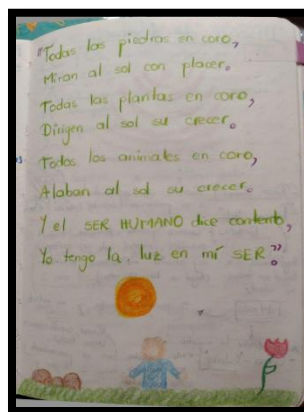 "Todas las piedras en coro,
Miran al sol con placer.
Todas las plantas en coro,
Dirigen al sol su crecer.
Todos los animales en coro,
Alaban al sol su crecer.
Y el SER HUMANO dice contento,
Yo tengo la luz en mí SER".